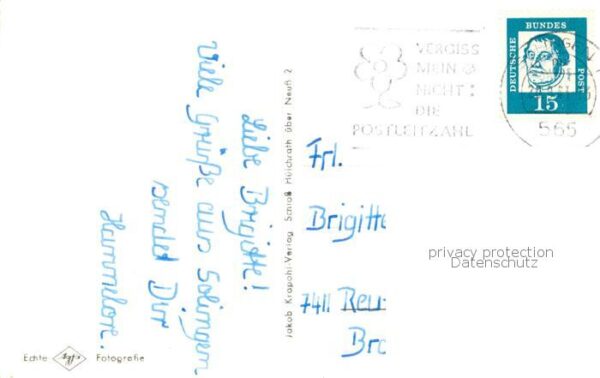 Liebe Brigitte!
Viele Grüße aus Solingen
sendet Dir
Hannelore.
Jakob Krapohl-Verlag Schloß Hülchrath über Neuß 2
Echte Agfa Fotografie
VERGISS
MEIN
NICHT:
DIE
POSTLEITZAHL
DEUTSCHE BUNDES POST
15
565
Frl.
Brigitte
7411 Reu
Br
privacy protection
Datenschutz